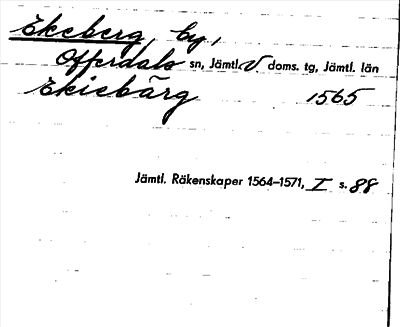 Ekeberg, by,
Offerdals sn, Jämtl. V doms. tg, Jämtl. län
Ekiebärg 1565
Jämtl. Räkenskaper 1564–1571, I s. 88